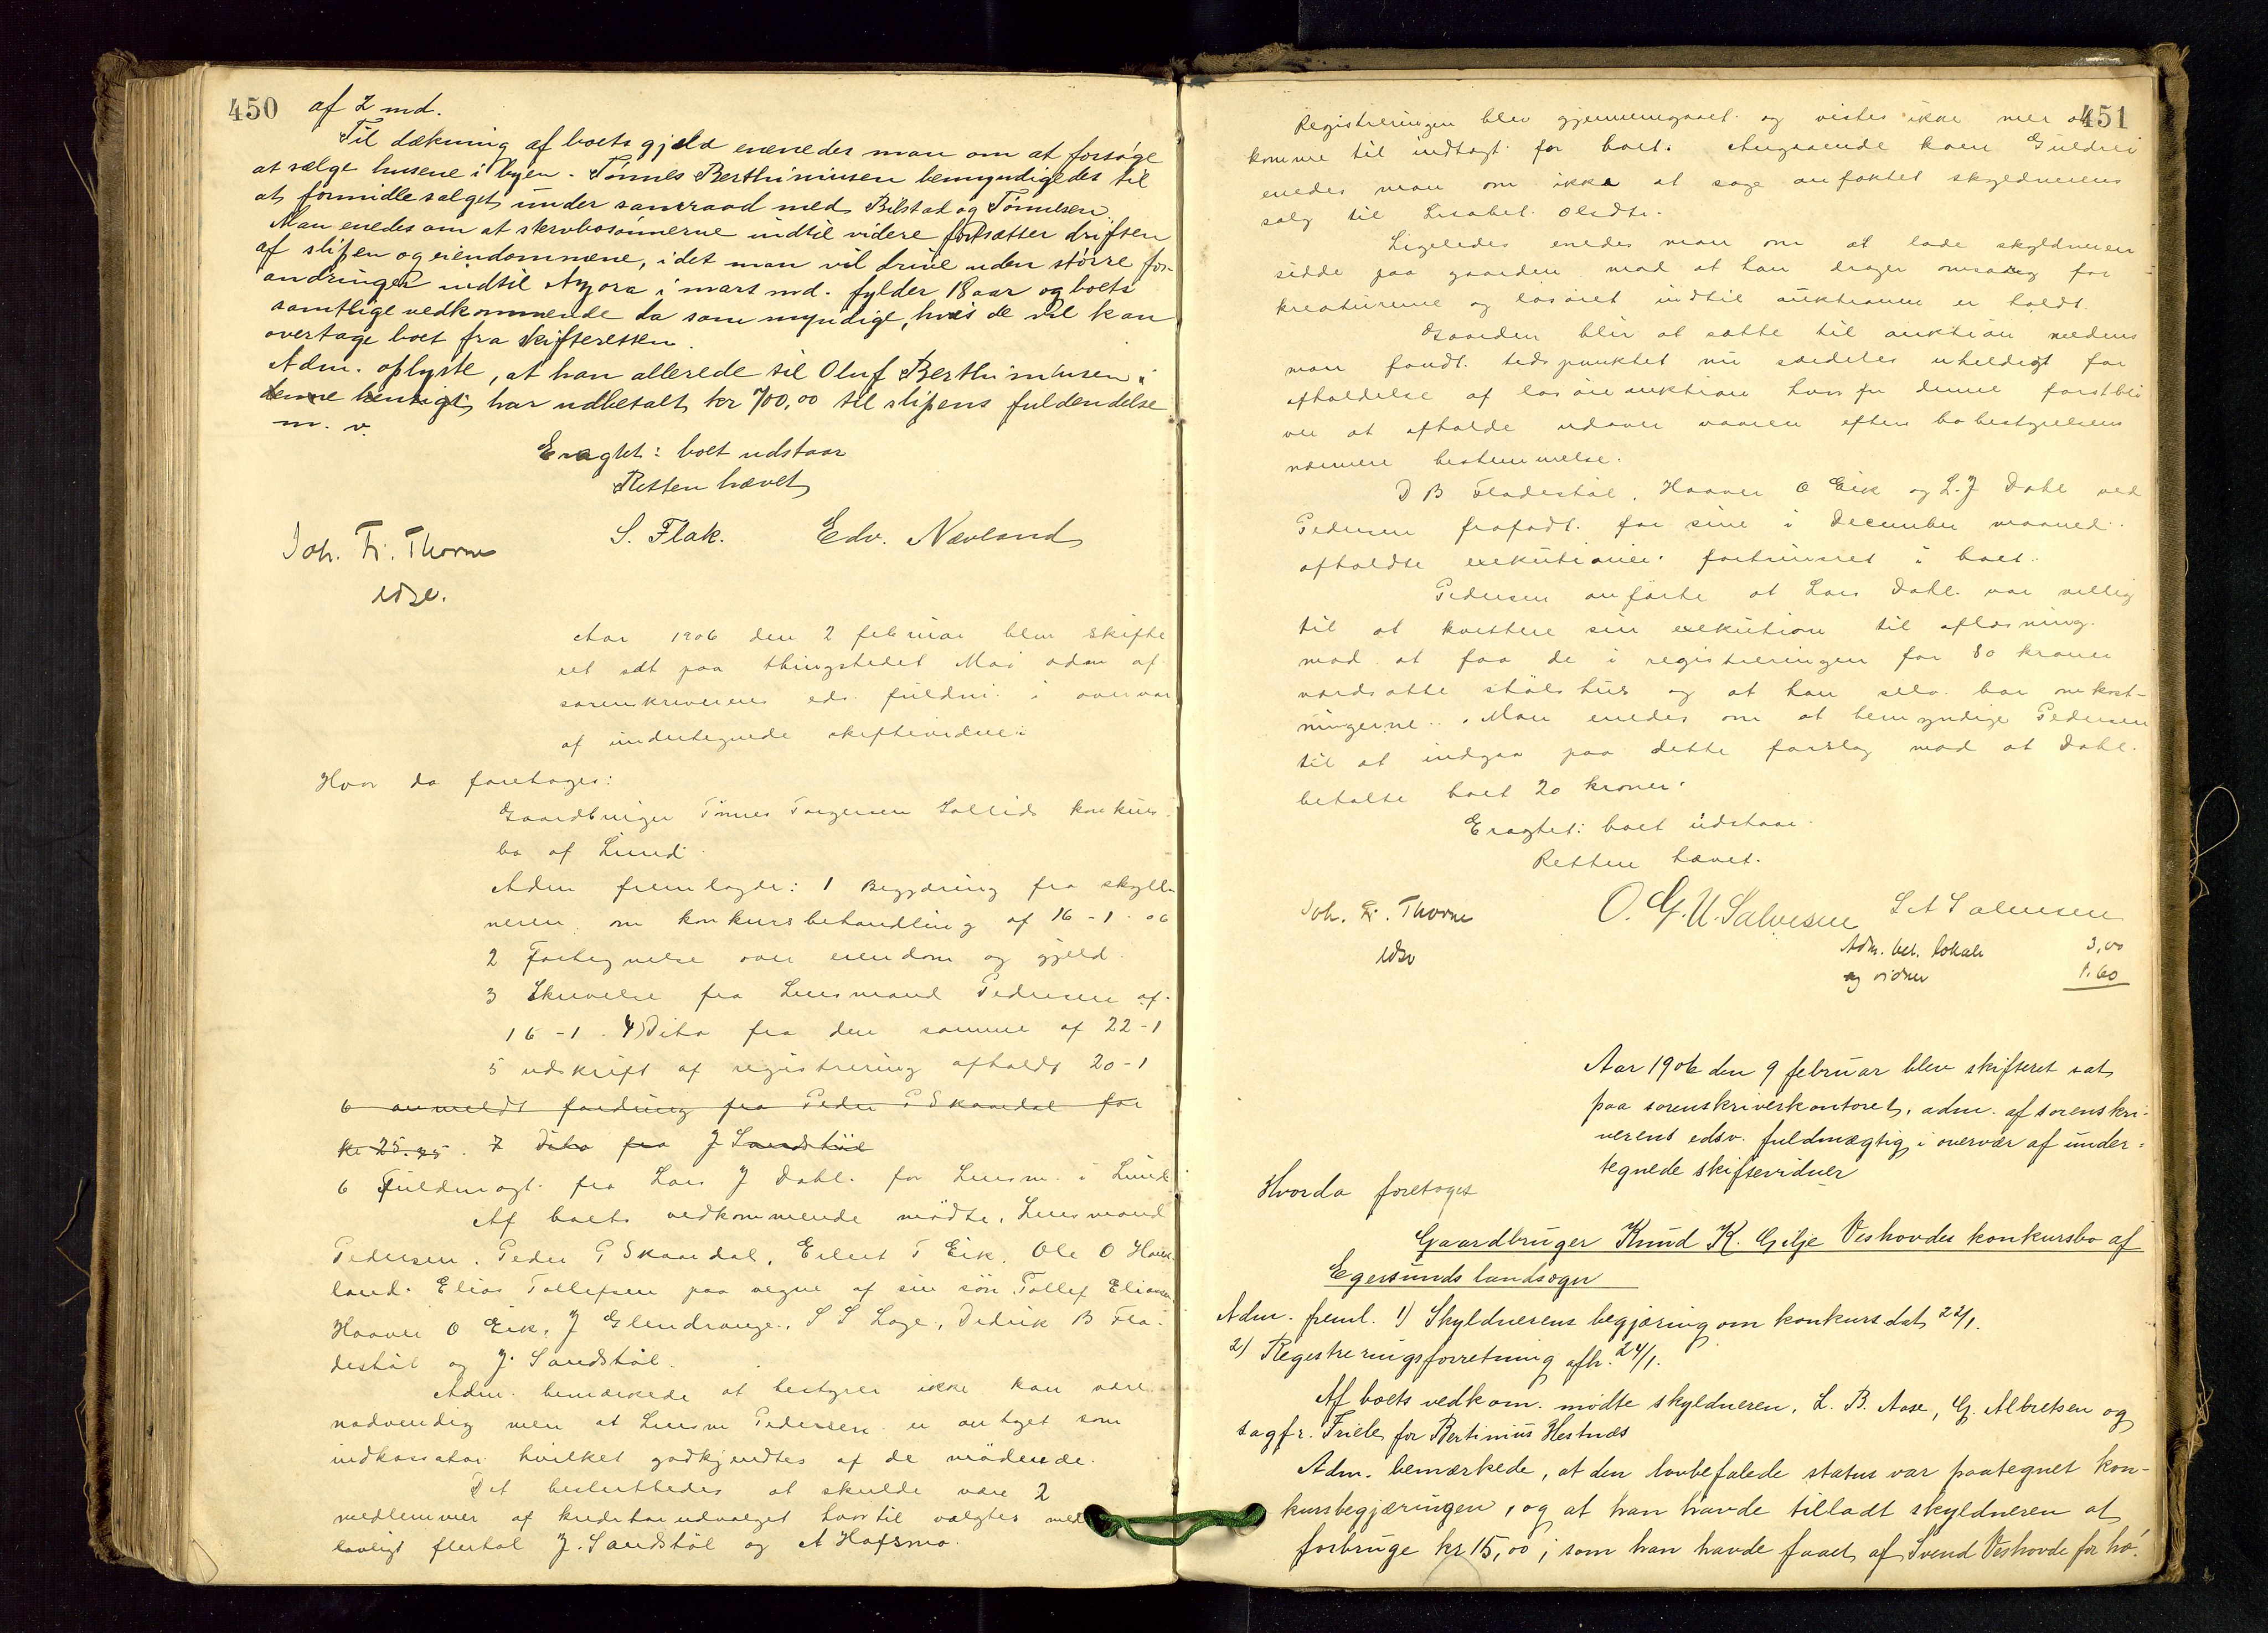 450
af 2 md.
Til dækning af boets gjæld enenedes man om at forsøge
at sælge husene i byen. Tønnes Berthiniusen bemyndigedes til
at formidle salget under samraad med Bilstad og Tønnesen.
Man enedes om at stervbosønnerne indtil videre fortsætter driften
af slipen og eiendommene, idet man vil drive uden større for-
andringer indtil Nyora i mart md. fylder 18 aar og boets
samtlige vedkommende da som myndige, hvis de vil kan
overtage boet fra skifteretten.
Adm. oplyste, at han allerede til Oluf Berthiniusen i
denne hensigt har udbetalt kr 700,00 til slipens fuldendelse
m. v.
Eragtet: boet udstaar
Retten hævet
Joh. Fr. Thorne S. Flak. Edv. Nævland
edsv.
Aar 1906 den 2 februar blev skifte
ret sat paa thingstedet Moi adm af
sorenskriverens eds. fuldm. i overvær
af undertegnede skiftevidner:
Hvor da foretages:
Gaardbruger Tønnes Torgersen Sollids konkurs
bo af Lund.
Adm fremlagde: 1 Begjæring fra skyld-
neren om konkursbehandling af 16-1-06
2 Fortegnelse over eiendom og gjeld.
3 Skrivelse fra Lensmand Pedersen af
16-1. 4) Dito fra den samme af 22-1
5 udskrift af registrering afholdt 20-1
6 anmeldt fordring fra Peder P Skaardal for
kr 25.75. 7 Dito fra J Sandstøl
6 Fuldmagt fra Lars J Dahl. for Lensm. i Lund
Af boets vedkommende mødte. Lensmand
Pedersen. Peder P Skaardal, Eilert T Eik. Ole O Hove
land. Elias Tollefsen paa vegne af sin søn Tollef Eliassen
Haaver O Eik, J Glendrange, S S Lage, Didrik B Fla-
destøl og J. Sandstøl.
Adm. bemærkede at bestyrer ikke kan være
nødvendig men at Lensm Pedersen er antaget som
indkassator hvilket godkjendtes af de mødende.
Det besluttedes at skulde være 2
medlemmer af kreditorudvalget hvortil valgtes med
lovligt flertal J. Sandstøl og A Hafsmo.
451
Registreringen blev gjennemgaaet og vistes ikke mer at
komme til indtægt for boet. Angaaende koen Guldrei
enedes man om ikke at søge anfægtet skyldnerens
salg til Lisabet Olsdtr.
Ligeledes enedes man om at lade skyldneren
sidde paa gaarden mod at han drager omsorg for
kreaturene og løsøret indtil auktionen er holdt.
Gaarden blir at sætte til auktion medens
man fandt tidspunktet nu særdeles uheldigt for
afholdelse af løsøreauktion hvorfor denne forstbli
ver at afholde udover vaaren efter bobestyrelsens
nærmere bestemmelse.
D B Fladestøl, Haaver O Eik og L. J Dahl ved
Pedersen frafaldt for sine i December maaned
afholdte exekutioner fortrinsret i boet.
Pedersen anførte at Lars Dahl var villig
til at kvittere sin exekution til aflæsning
mod at faa de i registreringen for 80 kroner
værdsatte stølshus og at han selv bar omkost-
ningerne. Man enedes om at bemyndige Pedersen
til at indgaa paa dette forslag mod at Dahl
betalte boet 20 kroner.
Eragtet: boet udstaar.
Retten hævet.
Joh. Fr. Thorne O. G. U. Salvesen S A Salvesen
edsv
Adm. bet. lokale 3,00
og vidner 1.60
Aar 1906 den 9 februar blev skifteret sat
paa sorenskriverkontoret, adm. af sorenskri-
verens edsv. fuldmægtig i overvær af under-
tegnede skiftevidner
Hvorda foretoges
Gaardbruger Knud K. Gilje Veshovdes konkursbo af
Egersunds landsogn
Adm. freml. 1) Skyldnerens begjæring om konkurs dat 22/1.
2) Registreringsforretning afh. 24/1.
Af boets vedkom. mødte skyldneren, L. B. Aase, G. Albretsen og
sagfr. Friele for Bertinius Hestnæs
Adm. bemærkede, at den lovbefalede status var paategnet kon-
kursbegjæringen, og at han havde tilladt skyldneren at
forbruge kr 15,00; som han havde faaet af Svend Veshovde for hø.